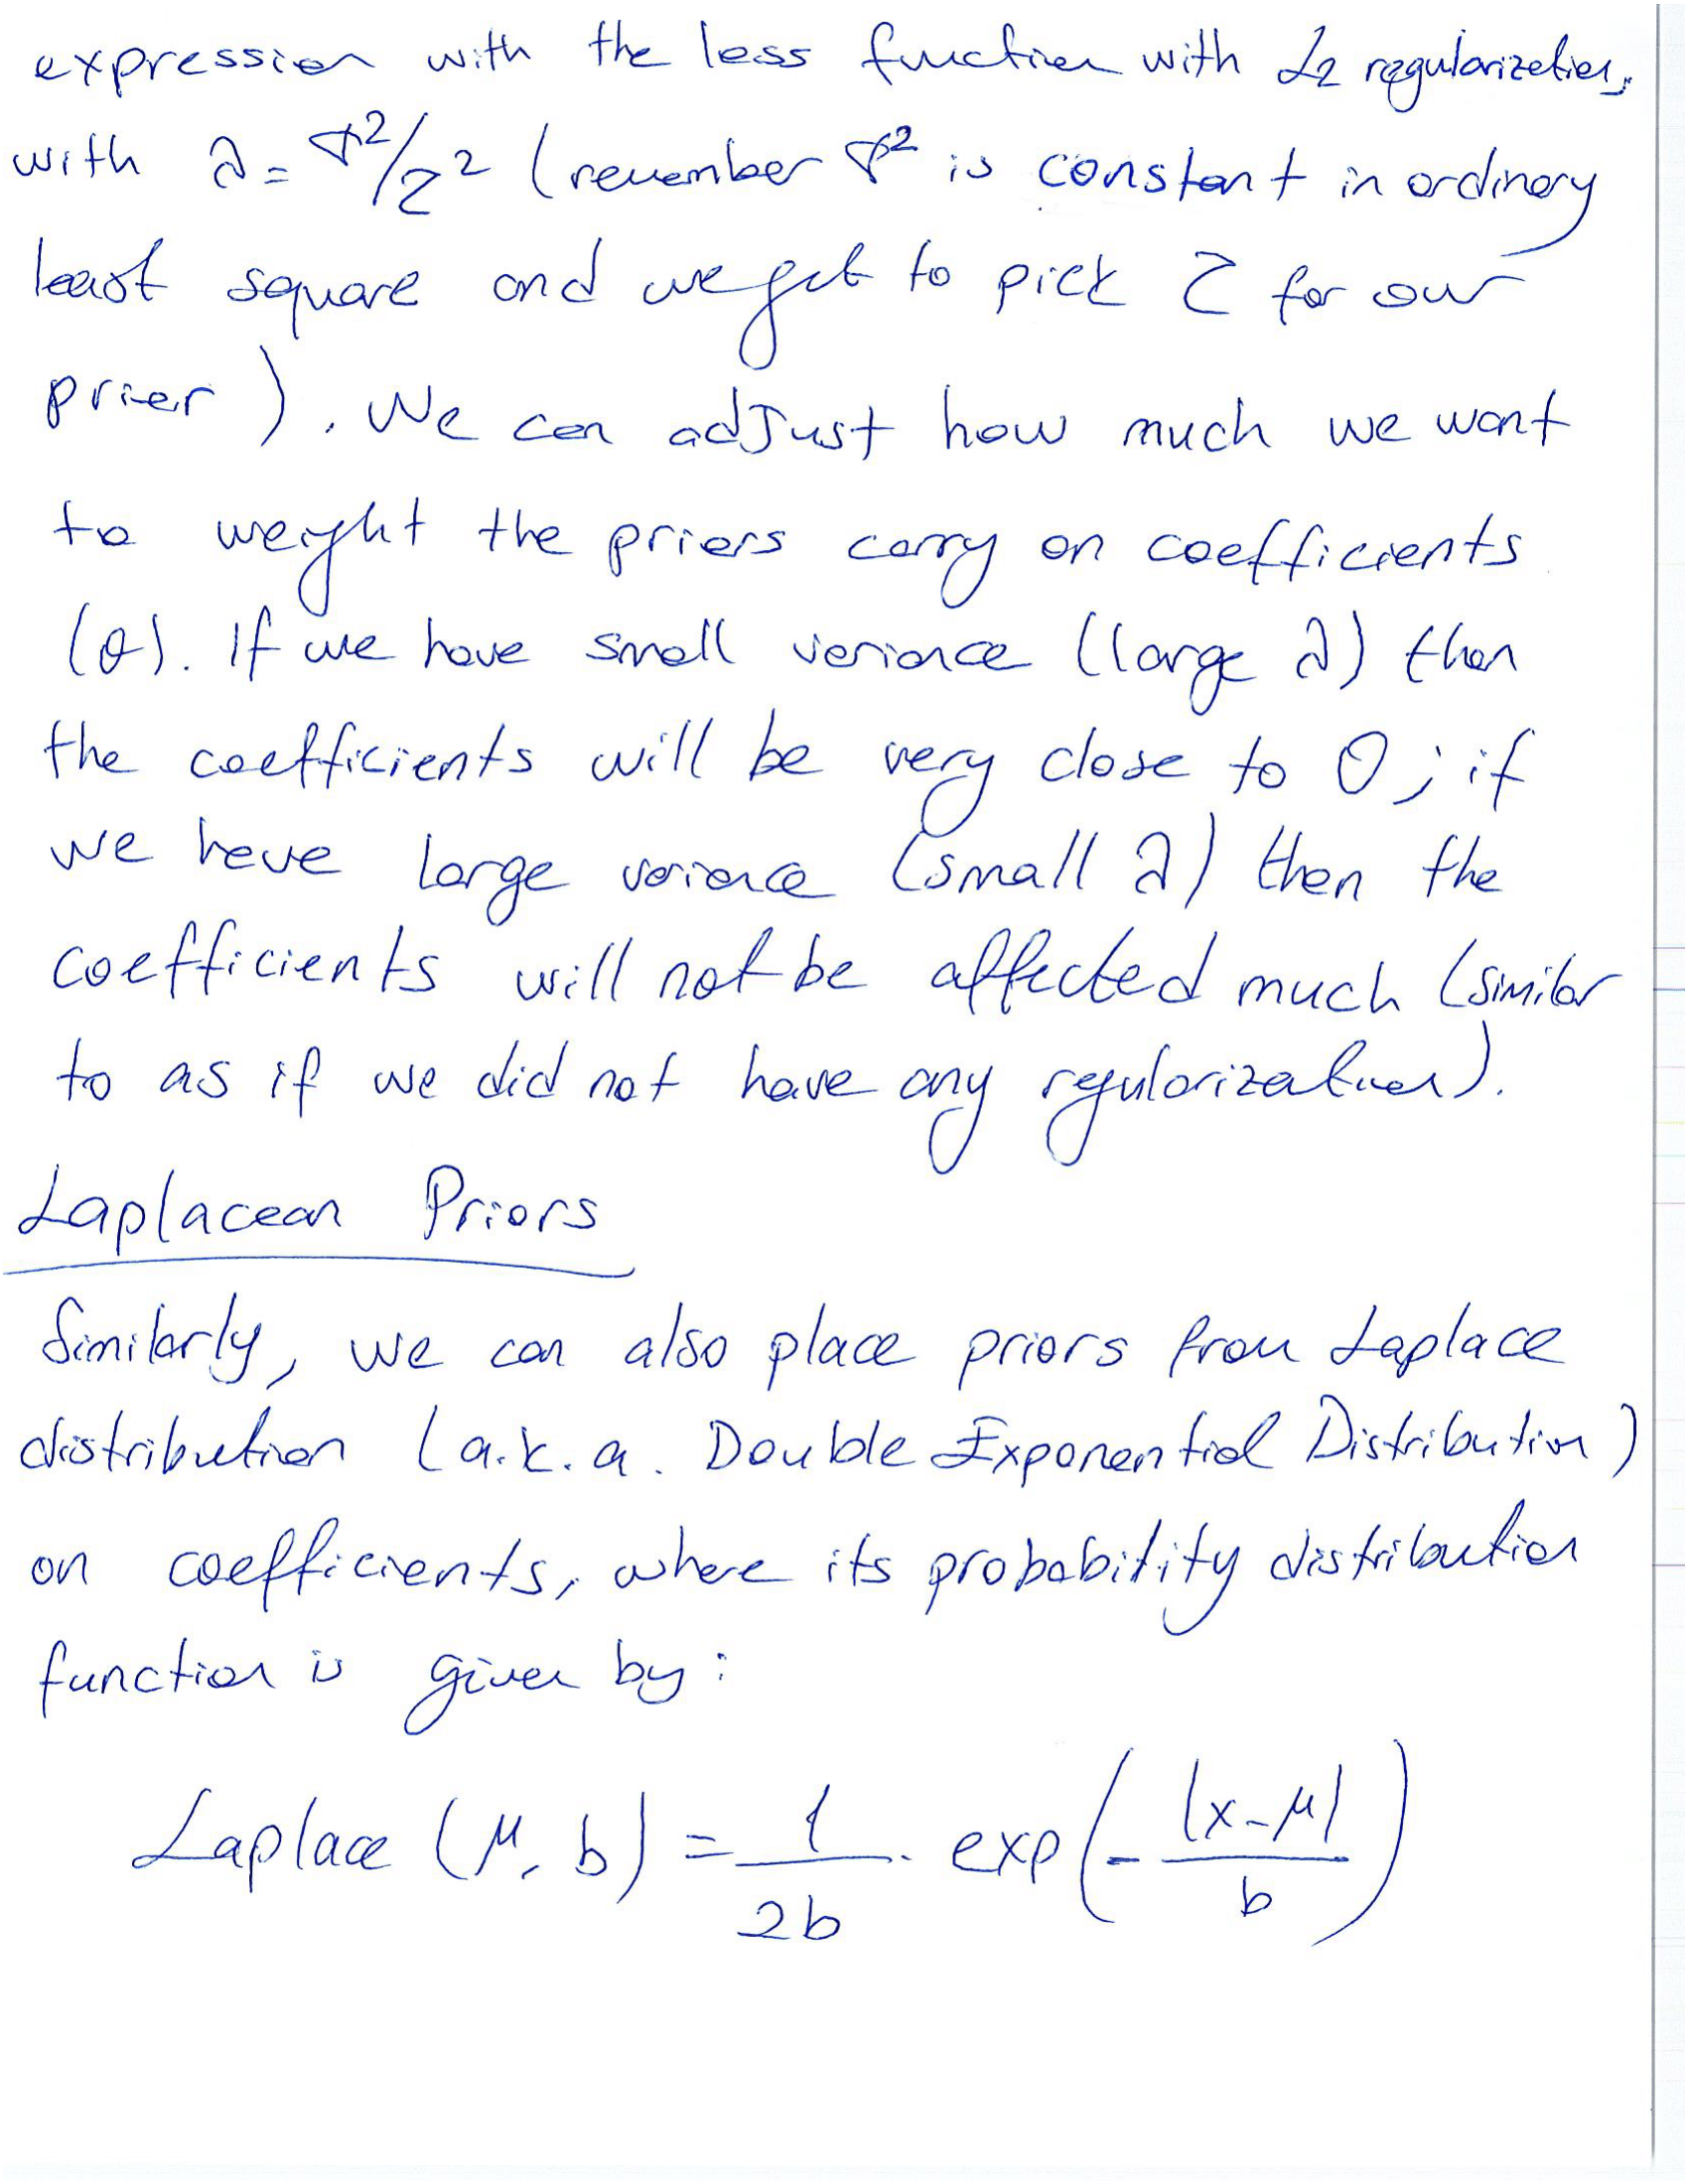 expression with the loss function with L2 regularization,
with λ = σ²/τ² (remember σ² is constant in ordinary
least square and we get to pick τ for our
prior). We can adjust how much we want
to weight the priors carry on coefficients
(θ). If we have small variance (large λ) then
the coefficients will be very close to 0; if
we have large variance (small λ) then the
coefficients will not be affected much (similar
to as if we did not have any regularization).
Laplacean Priors
Similarly, we can also place priors from Laplace
distribution (a.k.a. Double Exponential Distribution)
on coefficients, where its probability distribution
function is given by:
Laplace (μ, b) = 1/2b · exp(-|x-μ|/b)